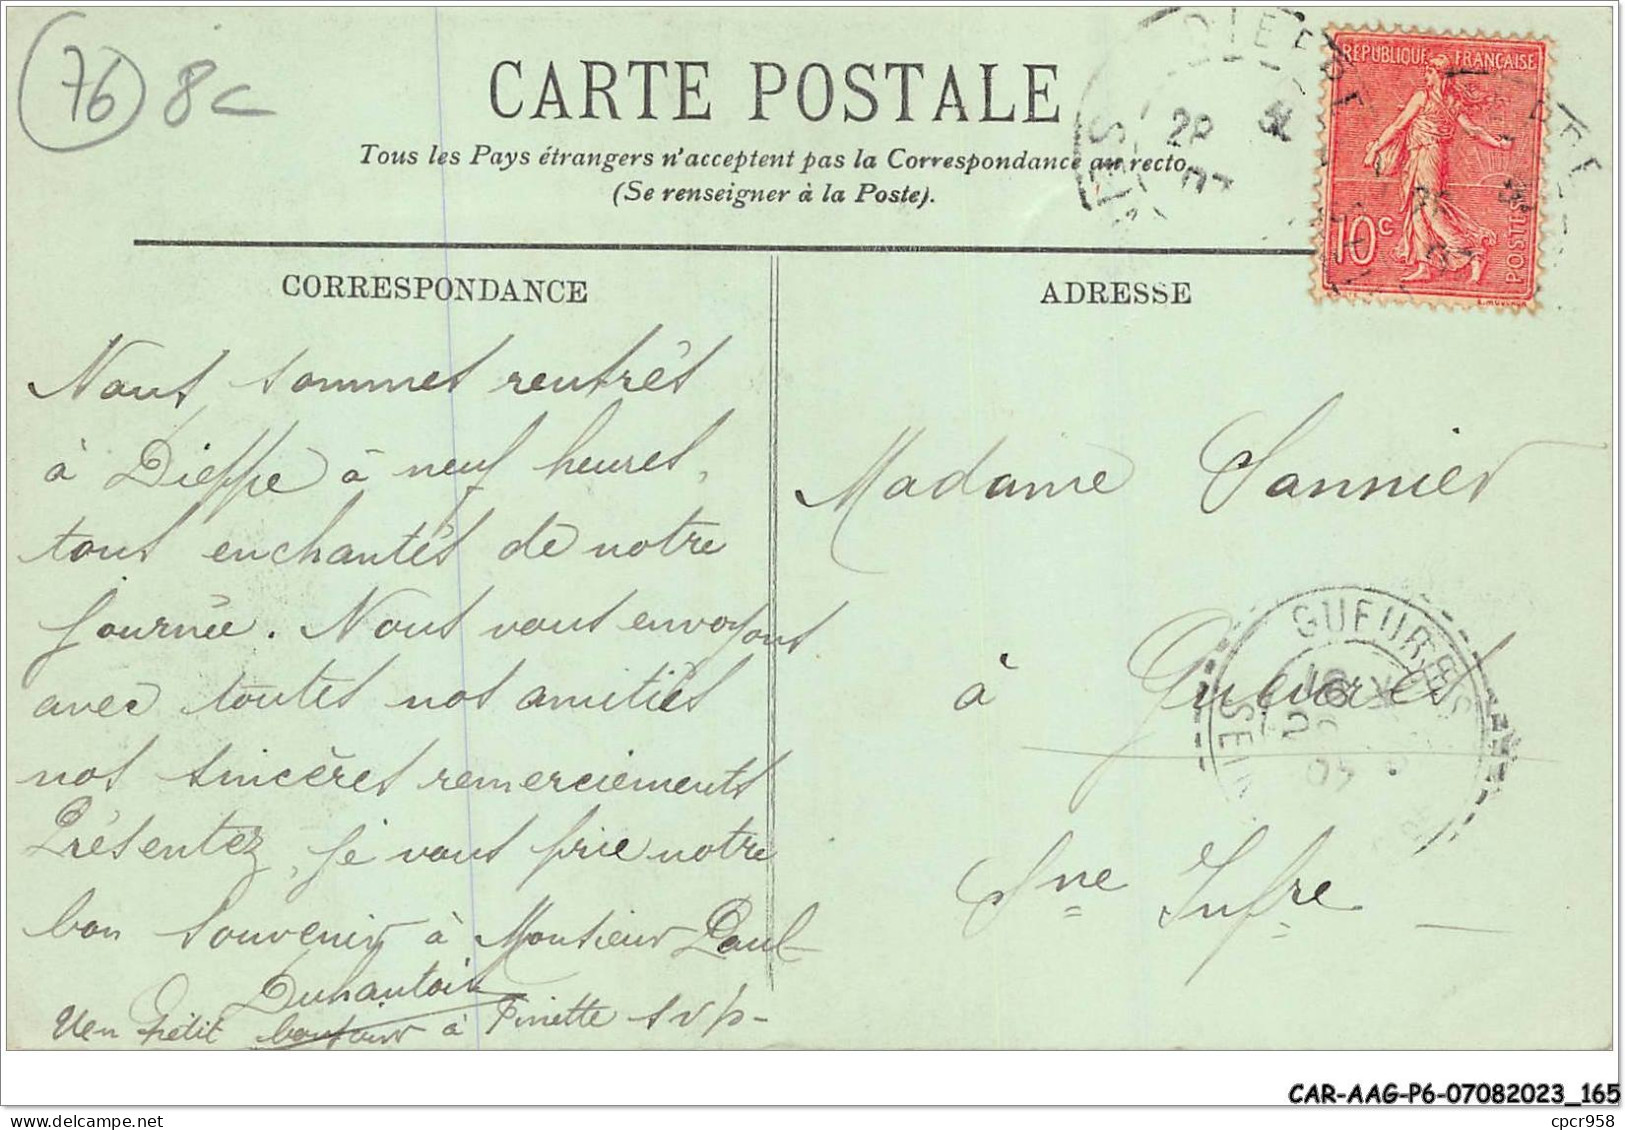 76 8c
CARTE POSTALE
Tous les Pays étrangers n'acceptent pas la Correspondance au recto
(Se renseigner à la Poste).
RÉPUBLIQUE FRANÇAISE
10c
POSTES
DIEPPE
CORRESPONDANCE
Nous sommes rentrés
à Dieppe à neuf heures,
tous enchantés de notre
journée. Nous vous envoyons
avec toutes nos amitiés
nos sincères remerciements
Présentez, je vous prie notre
bon souvenir à Monsieur Paul
Duhautois
Un petit bonjour à Finette svp-
ADRESSE
Madame Sannier
à Gueures
Sne Infre
GUEURES
CAR-AAG-P6-07082023_165
cpcr958